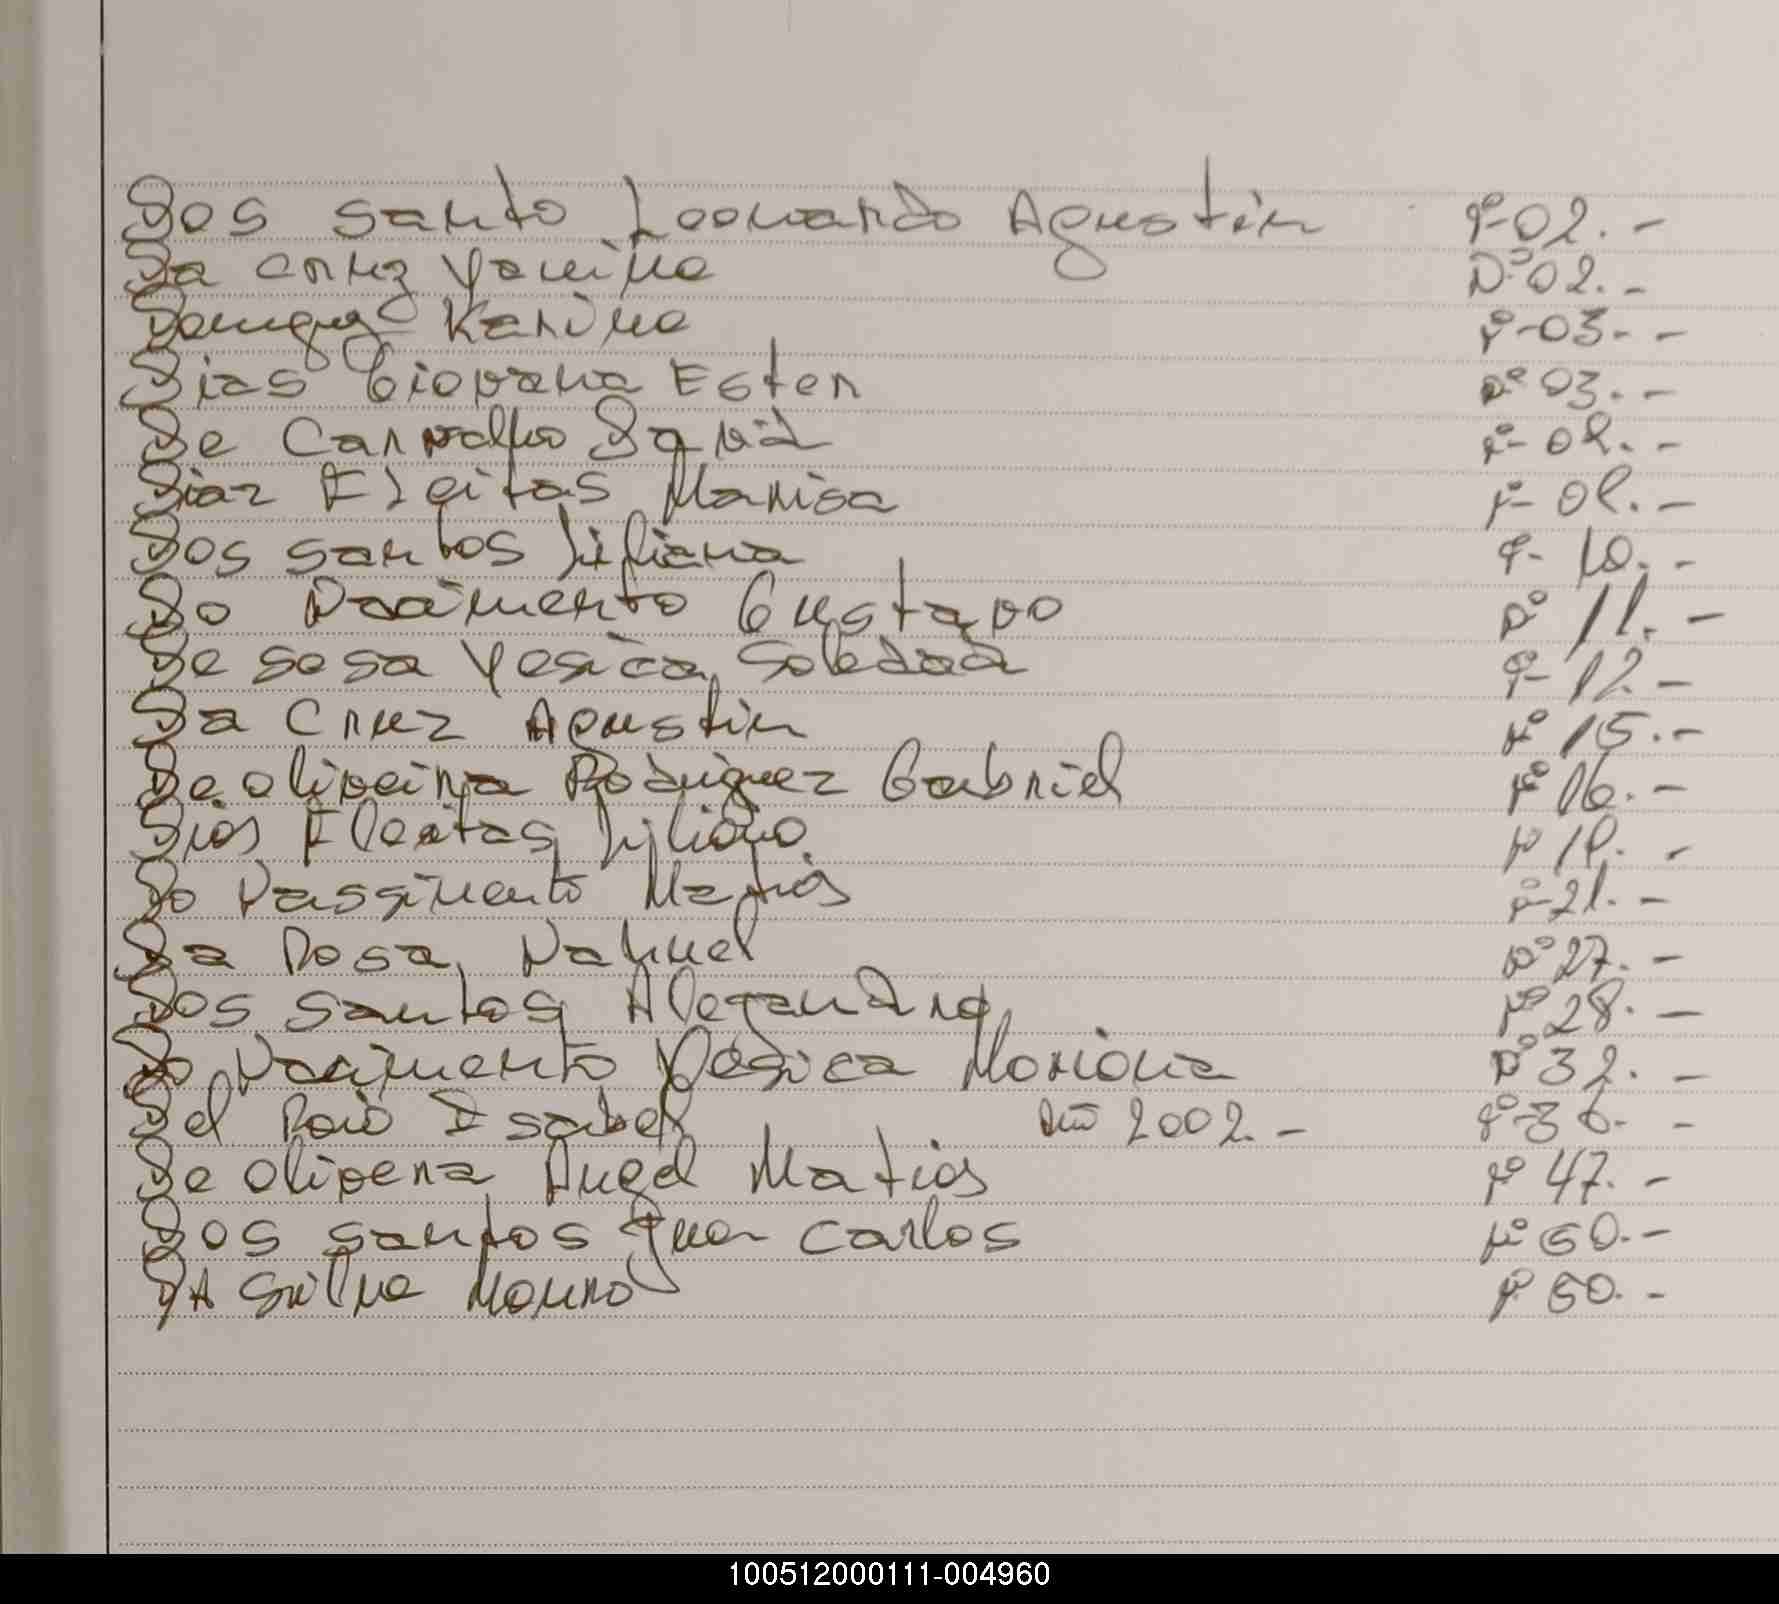 Dos santo Leonardo Agustin Fº 02.-
Da cruz Yanina Nº 02.-
Karina Fº 03.-
Dias Giovana Ester Nº 03.-
De Carvalho David Fº 08.-
Diaz Fleitas Marisa Fº 08.-
Dos santos Liliana Fº 10.-
Do Nacimento Gustavo Nº 11.-
De sosa Yesica Soledad Fº 12.-
Da Cruz Agustin Nº 15.-
De oliveira Rodriguez Gabriel Fº 16.-
Dias Fleitas Liliana Fº 18.-
Do Nassimento Matias Fº 21.-
Da Rosa Nahuel Nº 27.-
Dos santos Alejandro Fº 28.-
Do Nacimento Yesica Mariana Nº 32.-
Del Isabel Año 2002.- Fº 36.-
De olivera Angel Matias Fº 47.-
Dos santos Juan Carlos Fº 60.-
DA Silva Mauro Fº 60.-
100512000111-004960